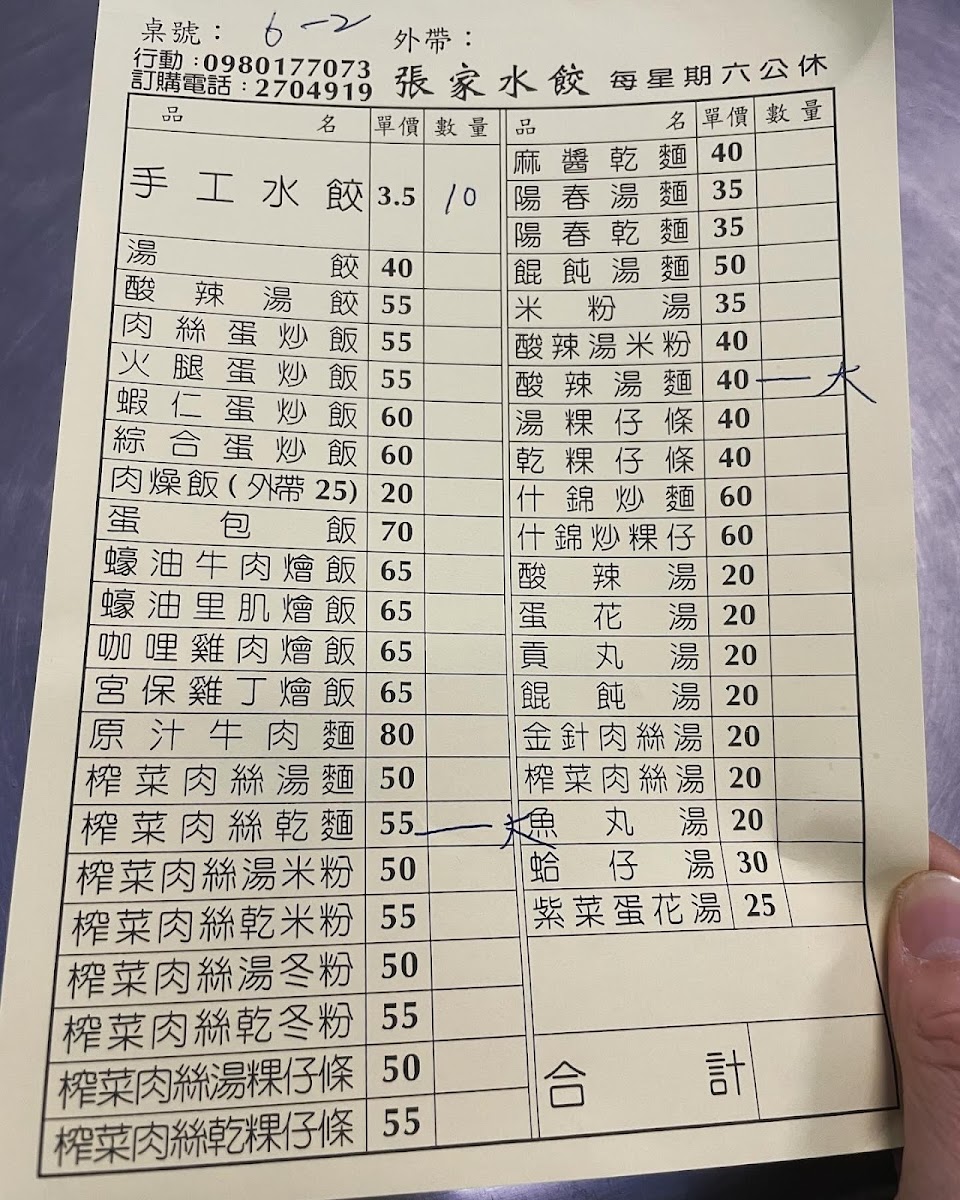 桌號： 6-2 外帶：
行動：0980177073
訂購電話：2704919 張家水餃 每星期六公休
品名 單價 數量
手工水餃 3.5 10
湯餃 40
酸辣湯餃 55
肉絲蛋炒飯 55
火腿蛋炒飯 55
蝦仁蛋炒飯 60
綜合蛋炒飯 60
肉燥飯(外帶25) 20
蛋包飯 70
蠔油牛肉燴飯 65
蠔油里肌燴飯 65
咖哩雞肉燴飯 65
宮保雞丁燴飯 65
原汁牛肉麵 80
榨菜肉絲湯麵 50
榨菜肉絲乾麵 55 一大
榨菜肉絲湯米粉 50
榨菜肉絲乾米粉 55
榨菜肉絲湯冬粉 50
榨菜肉絲乾冬粉 55
榨菜肉絲湯粿仔條 50
榨菜肉絲乾粿仔條 55
品名 單價 數量
麻醬乾麵 40
陽春湯麵 35
陽春乾麵 35
餛飩湯麵 50
米粉湯 35
酸辣湯米粉 40
酸辣湯麵 40 一大
湯粿仔條 40
乾粿仔條 40
什錦炒麵 60
什錦炒粿仔 60
酸辣湯 20
蛋花湯 20
貢丸湯 20
餛飩湯 20
金針肉絲湯 20
榨菜肉絲湯 20
魚丸湯 20
蛤仔湯 30
紫菜蛋花湯 25
合計